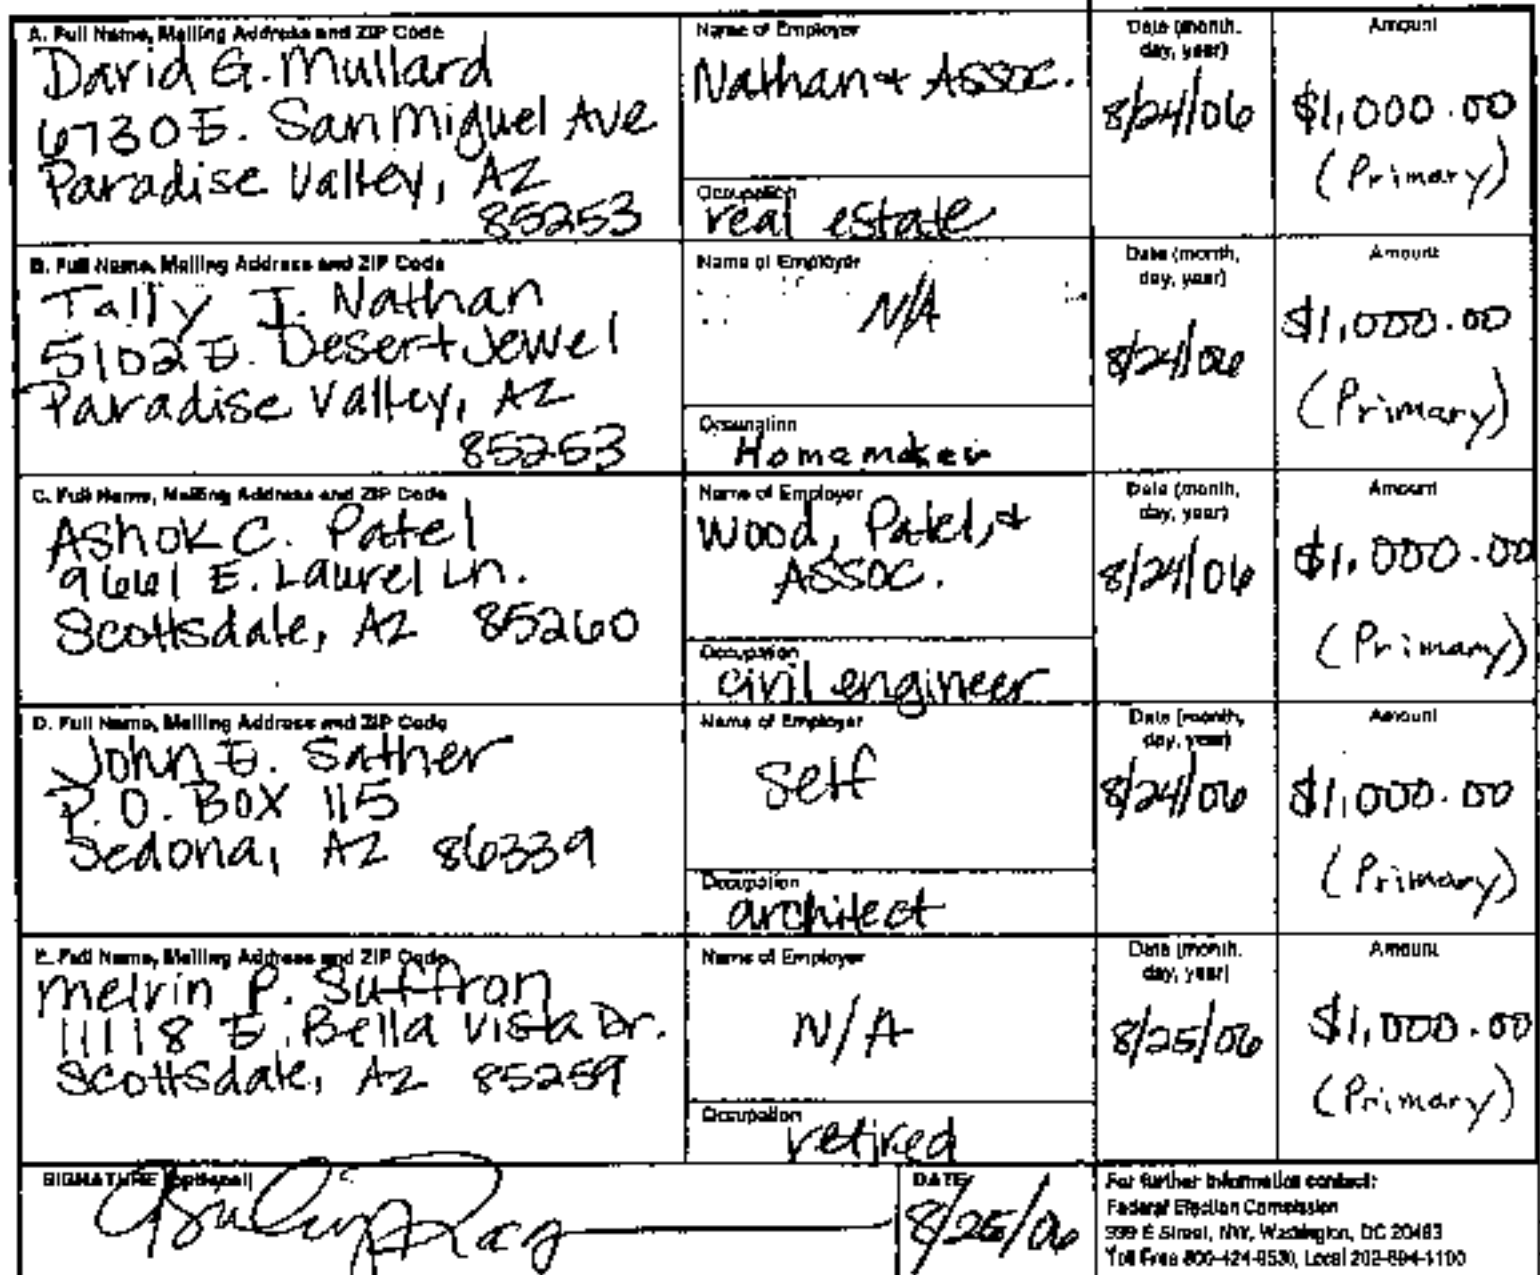 A. Full Name, Mailing Address and ZIP Code
David G. Mullard
6730 E. San Miguel Ave
Paradise Valley, AZ
85253
Name of Employer
Nathan + Assoc.
Occupation
real estate
Date (month,
day, year)
8/24/06
Amount
$1,000.00
(Primary)
B. Full Name, Mailing Address and ZIP Code
Tally J. Nathan
5102 E. Desert Jewel
Paradise Valley, AZ
85253
Name of Employer
N/A
Occupation
Homemaker
Date (month,
day, year)
8/24/06
Amount
$1,000.00
(Primary)
C. Full Name, Mailing Address and ZIP Code
Ashok C. Patel
9661 E. Laurel Ln.
Scottsdale, AZ 85260
Name of Employer
Wood, Patel, +
Assoc.
Occupation
civil engineer
Date (month,
day, year)
8/24/06
Amount
$1,000.00
(Primary)
D. Full Name, Mailing Address and ZIP Code
John E. Sather
P.O. Box 115
Sedona, AZ 86339
Name of Employer
Self
Occupation
architect
Date (month,
day, year)
8/24/06
Amount
$1,000.00
(Primary)
E. Full Name, Mailing Address and ZIP Code
Melvin P. Suffron
11118 E. Bella Vista Dr.
Scottsdale, AZ 85259
Name of Employer
N/A
Occupation
retired
Date (month,
day, year)
8/25/06
Amount
$1,000.00
(Primary)
SIGNATURE (optional)
DATE
8/25/06
For further information contact:
Federal Election Commission
999 E Street, NW, Washington, DC 20463
Toll Free 800-424-9530, Local 202-694-1100